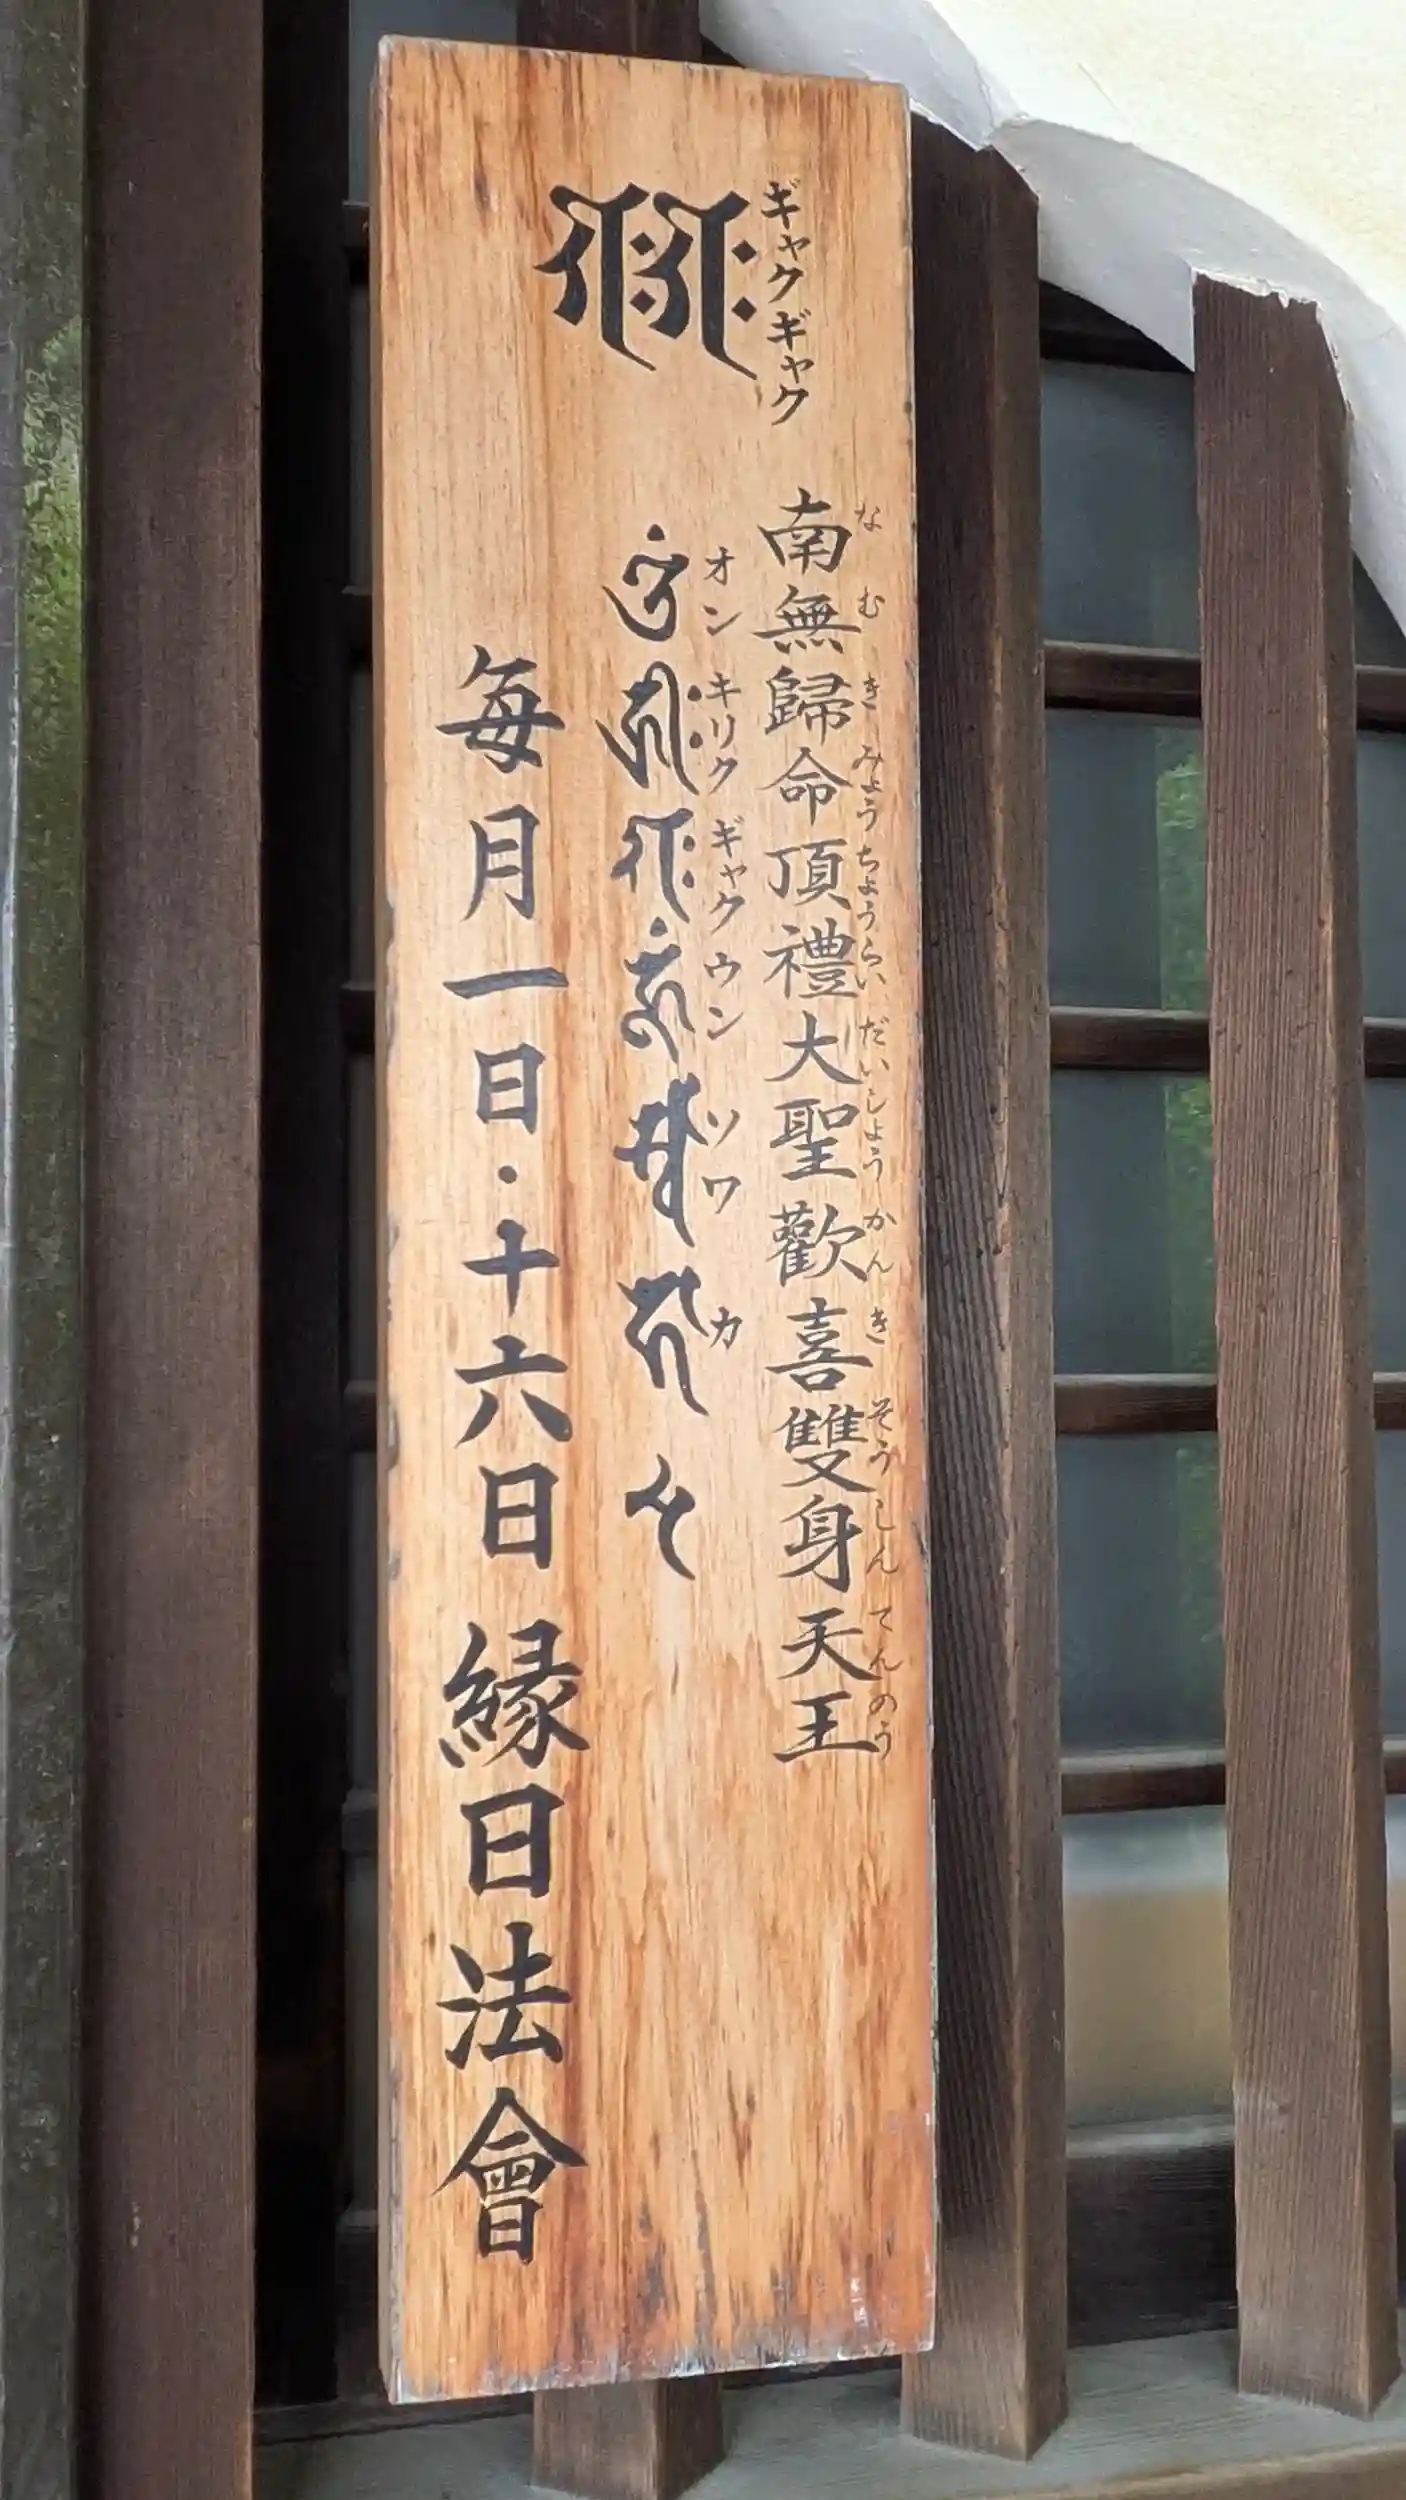 ギャクギャク
なむきみょうちょうらいだいしょうかんきそうしんてんのう
南無歸命頂禮大聖歡喜雙身天王
オン キリク ギャク ウン ソワ カ
毎月一日・十六日 縁日法會